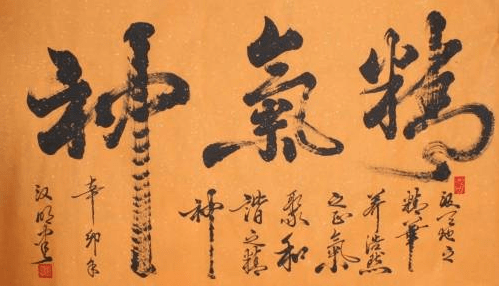 精氣神
取天地之
精華
养浩然
之正氣
聚和
諧之精
神
辛卯年